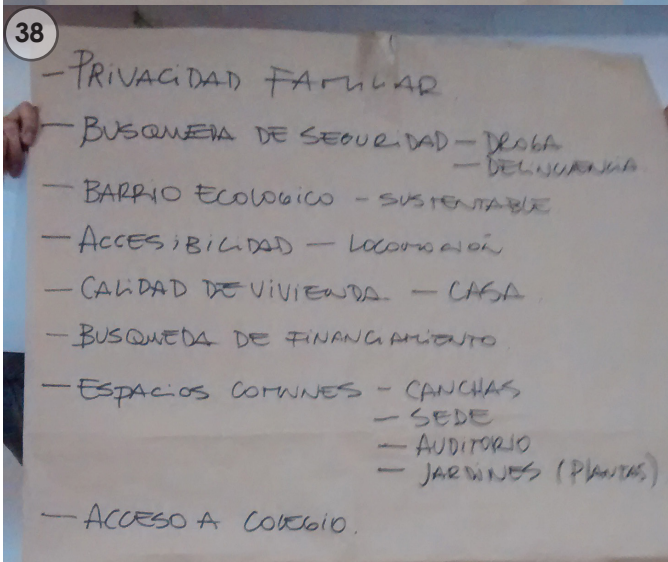 38
- PRIVACIDAD FAMILIAR
- BUSQUEDA DE SEGURIDAD - DROGA
- DELINCUENCIA
- BARRIO ECOLOGICO - SUSTENTABLE
- ACCESIBILIDAD - LOCOMOCIÓN
- CALIDAD DE VIVIENDA - CASA
- BUSQUEDA DE FINANCIAMIENTO
- ESPACIOS COMUNES - CANCHAS
- SEDE
- AUDITORIO
- JARDINES (PLANTAS)
- ACCESO A COLEGIO.